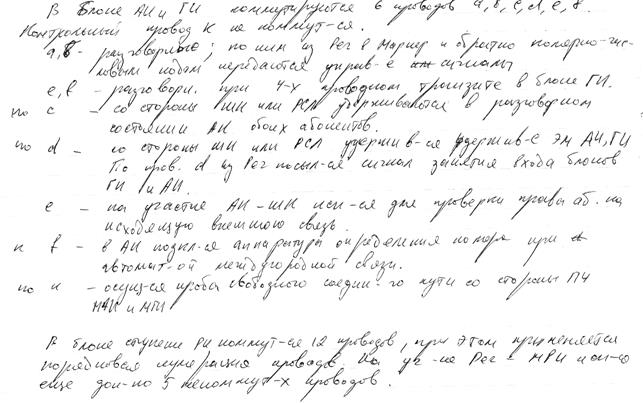 В блоке АИ и ГИ коммутируются 6 проводов a, b, c, d, e, f.
Контрольный провод К не коммут-ся.
a, b - разговорные; по ним из Рег в Маркер и обратно полярно-чис-
ловым кодом передаются управ-е сигналы
e, f - разговорн. при 4-х проводном транзите в блоке ГИ.
по c - со стороны ШК или РСЛ удерживаются в разговорном
состоянии АК обоих абонентов.
по d - со стороны ШК или РСЛ удержив-ся удержив-е ЭМ АИ, ГИ
По пров. d из Рег посыл-ся сигнал занятия входа блоков
ГИ и АИ.
e - на участке АИ-ШК исп-ся для проверки права аб. на
исходящую внешнюю связь.
к f - в АИ подкл-ся аппаратура определения номера при
автомат-ой междугородной связи.
по к - осущ-ся проба свободного соедин-го пути со стороны ПЧ
МАИ и МГИ
В блоке ступени РИ коммут-ся 12 проводов, при этом применяется
порядковая нумерация проводов. На уч-ке Рег - МРИ исп-ся
еще доп-но 5 некоммут-х проводов.